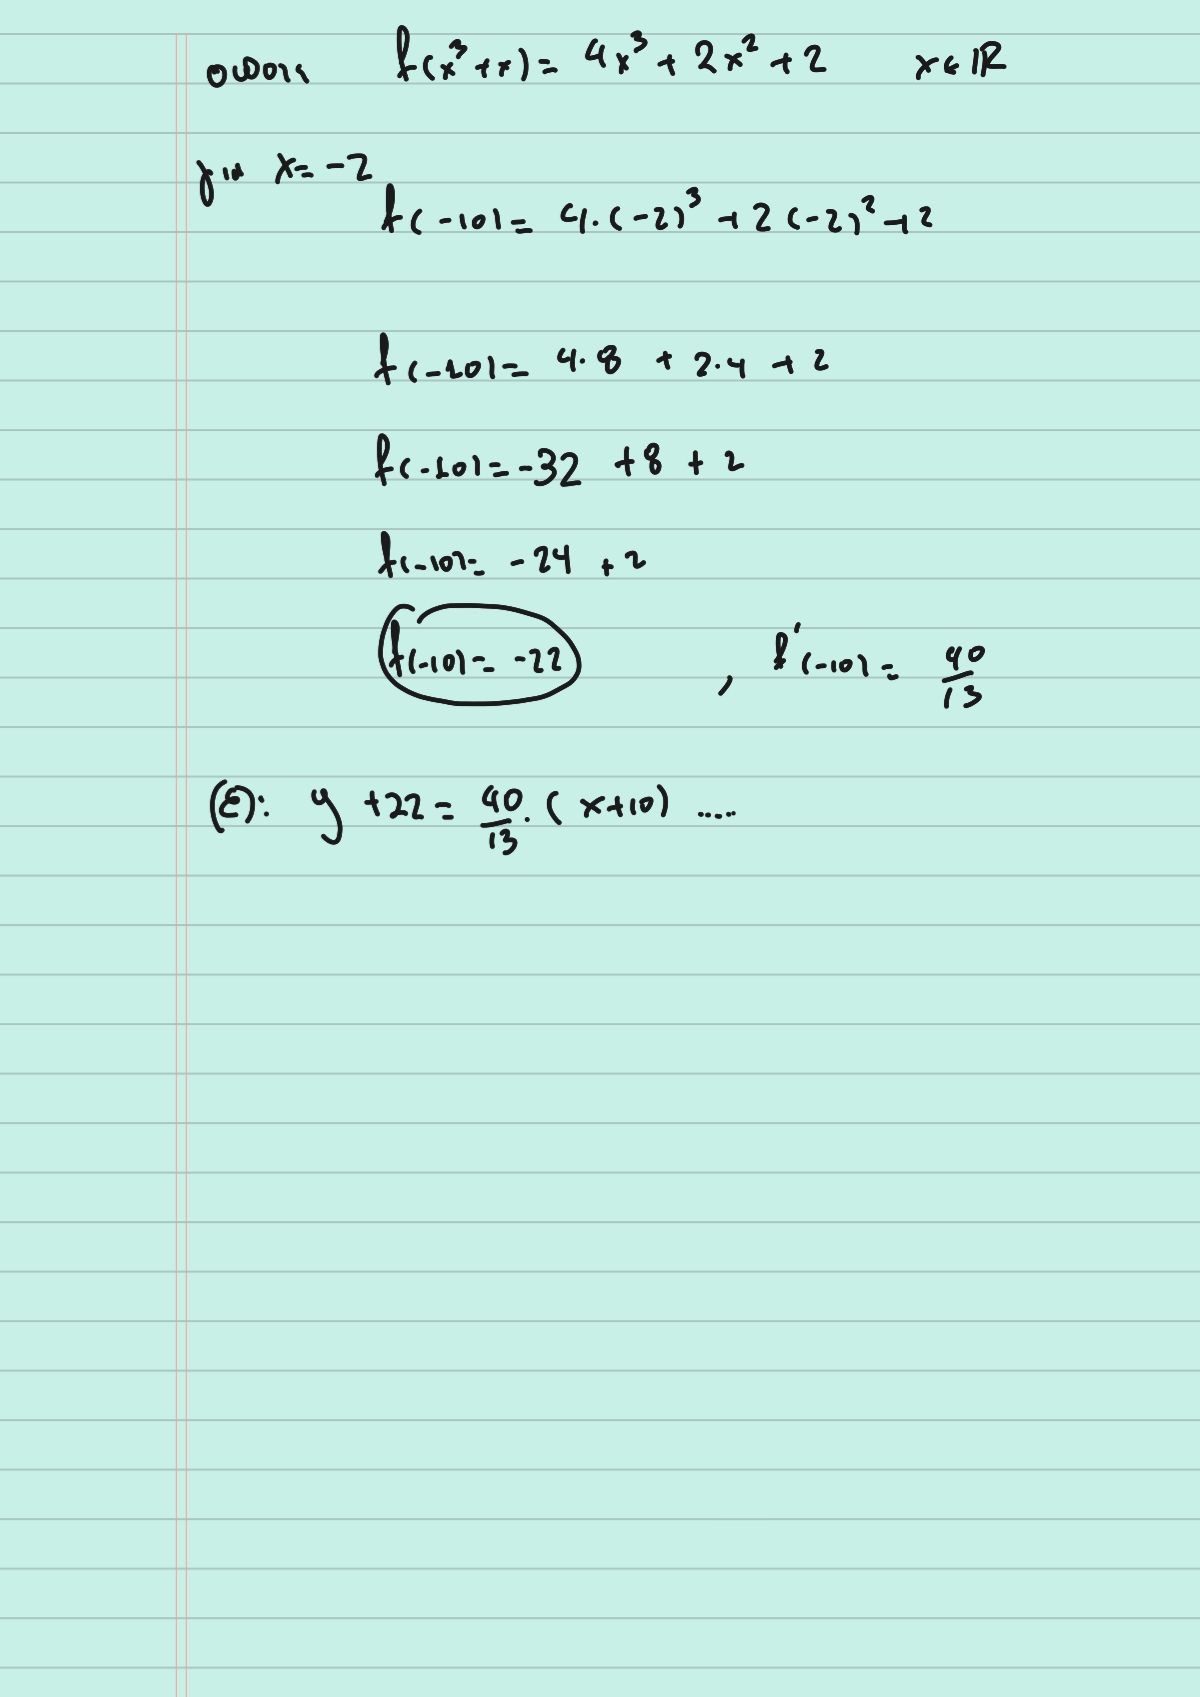 οπότε f(x³+x) = 4x³ + 2x² + 2 x∈ℝ
για x = -2
f(-10) = 4·(-2)³ + 2(-2)² + 2
f(-10) = 4·8 + 2·4 + 2
f(-10) = -32 + 8 + 2
f(-10) = -24 + 2
f(-10) = -22 , f'(-10) = 40/13
(ε): y + 22 = 40/13 · (x+10) .....